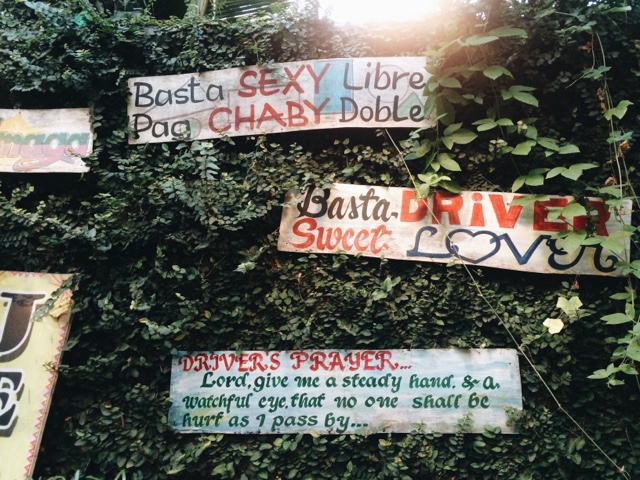 Basta SEXY Libre
Pag CHABY Doble
Basta DRiVER
Sweet LOVER
DRIVER'S PRAYER...
Lord, give me a steady hand, & a
watchful eye, that no one shall be
hurt as I pass by...